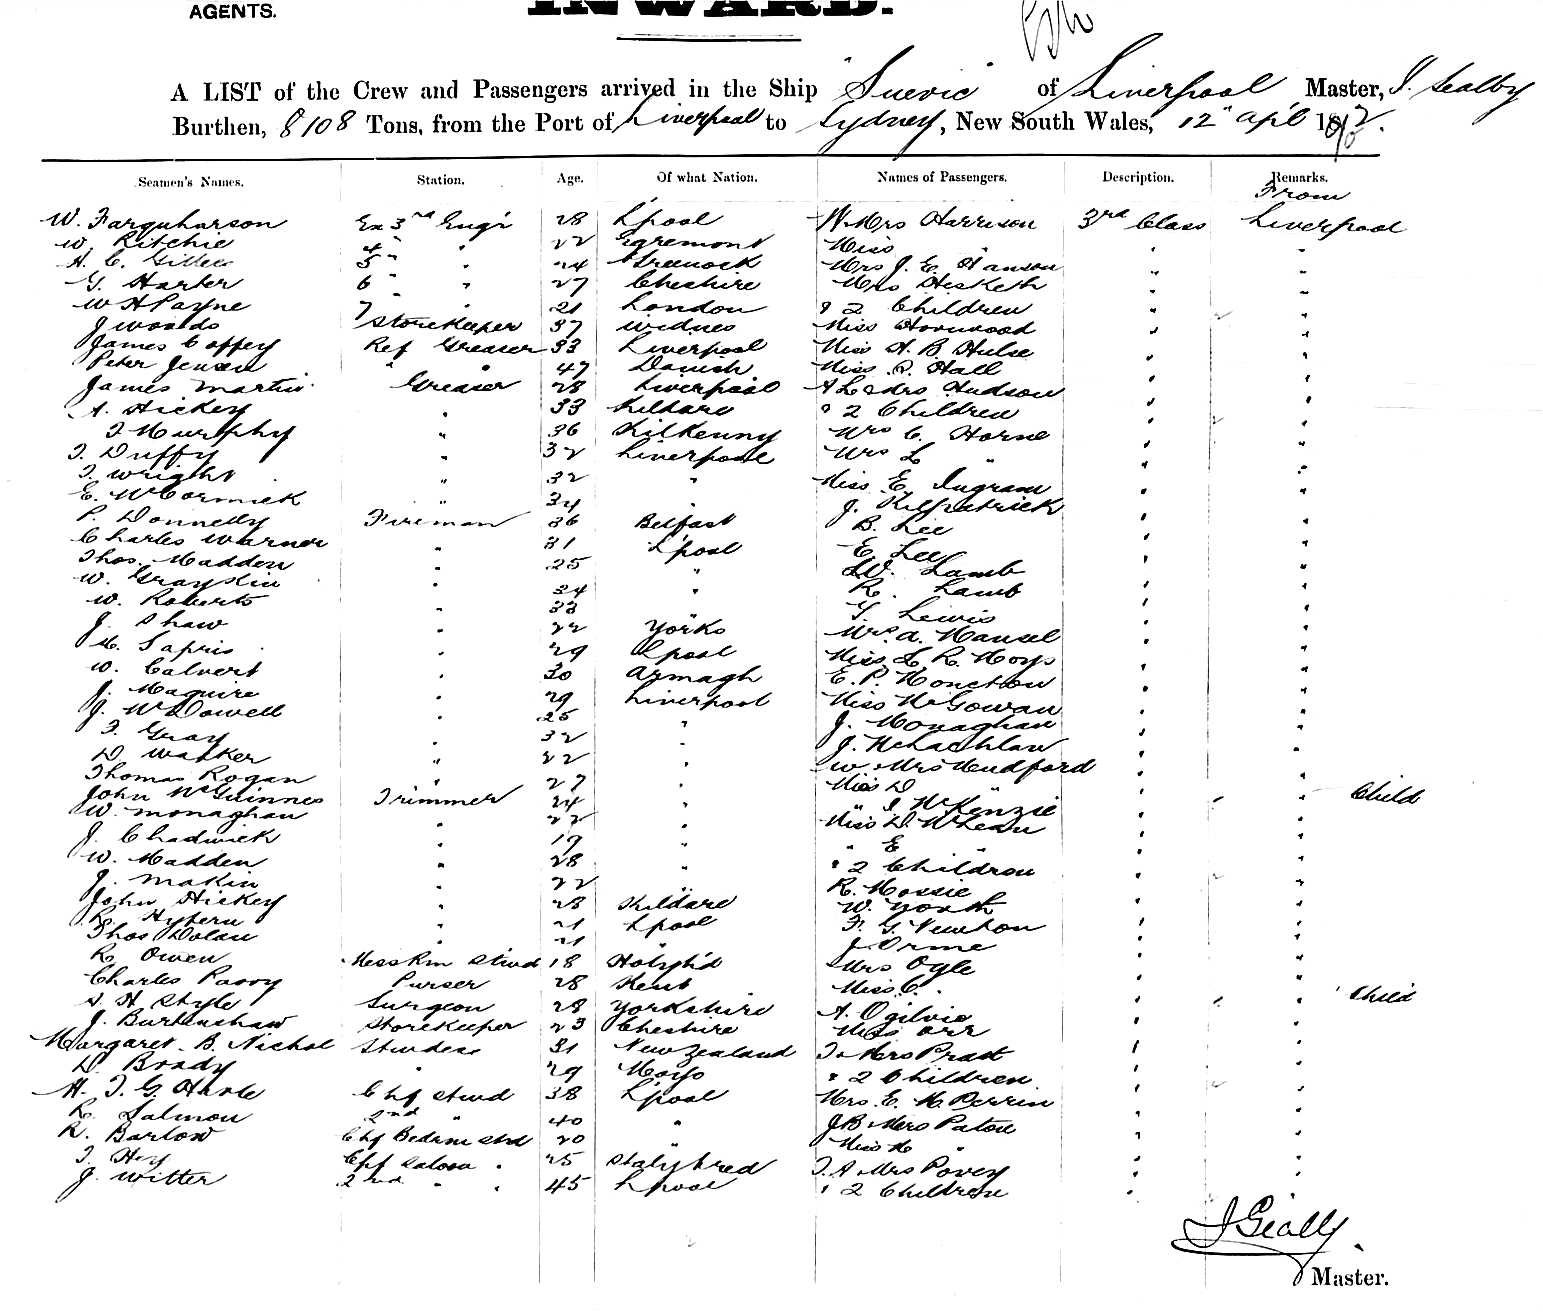 AGENTS.
INWARD.
A LIST of the Crew and Passengers arrived in the Ship "Suevic" of Liverpool Master, J. Gealby
Burthen, 8108 Tons, from the Port of Liverpool to Sydney, New South Wales, 12" Apl
Seamen's Names. Station. Age. Of what Nation. Names of Passengers. Description. Remarks.
From
W. Farquharson Ex 3rd Engr 28 L'pool W. Mrs Harrison 3rd Class Liverpool
W. Ritchie 4 " " 22 Egremont Miss " " "
A. C. 5 " " 24 Greenock Mrs J. E. Hanson " "
G. Harter 6 " " 27 Cheshire Mrs Hesketh " "
W H Payne 7 " 21 London " 2 Children " "
J Woods Storekeeper 37 Widnes Miss Hornwood " "
James Caffery Ref Greaser 33 Liverpool Miss A. B. Hulse " "
Peter Jensen " " 47 Danish Miss P. Hall " "
James Martin Greaser 28 Liverpool A L & Mrs Hudson " "
A. Hickey " 33 Kildare " 2 Children " "
T Murphy " 36 Kilkenny Mrs C. Horne " "
T. Duffy " 32 Liverpool Mrs L " " "
T. Wright " 32 " Miss E. Ingram " "
E. McCormick " 34 " J. Kilpatrick " "
P. Donnelly Fireman 36 Belfast B. Lee " "
Charles Warner " 31 L'pool E. Lee " "
Thos. Madden " 25 " W. Lamb " "
W. Grayskin " 34 " R. Lamb " "
W. Roberts " 33 " T. Lewis " "
J. Shaw " 22 Yorks Mrs A. Mansel " "
M. Sapris " 29 L'pool Miss L. R. Moys " "
W. Calvert " 30 Armagh E. P. Moncton " "
J. Maguire " 29 Liverpool Miss McGowan " "
J. McDowell " 25 " J. Monaghan " "
F. Gray " 32 " J. McLachlan " "
D. Walker " 22 " W. Mrs Mudford " "
Thomas Rogan 27 " Miss D " " "
John McGuinness Trimmer 24 " " J McKenzie " " Child
W. Monaghan " 22 " Miss D. McLean " "
J. Chadwick " 19 " " E " " "
W. Madden " 28 " " 2 Children " "
J. Makin " 22 " R. Mossie " "
John Hickey " 28 Kildare W. North " "
R. " 21 L'pool F. G. Newton " "
Thos Dolan " 21 " J. Orme " "
R. Owen Messrm Stwd 18 Holyh'd Mrs Ogle " "
Charles Parry Purser 28 Kent Miss C. " " Child
S. H. Style Surgeon 28 Yorkshire A. Ogilvie " "
J. Burkinshaw Storekeeper 23 Cheshire Miss Orr " "
Margaret B. Nichol Stwdess 31 New Zealand T & Mrs Pratt " "
D. Brady " 29 Mayo " 2 Children " "
H. T. G. Chf Stwd 38 L'pool Mrs E. M Perrin " "
R. Salmon 2nd " 40 " J B & Mrs Paton " "
R. Barlow Chf Bedrm Stwd 20 " Miss M " " "
T. Hey Chf Saloon " 25 Stalybred T. A & Mrs Povey " "
J. Witter 2nd " " 45 L'pool " 2 Children " "
J Gealby
Master.